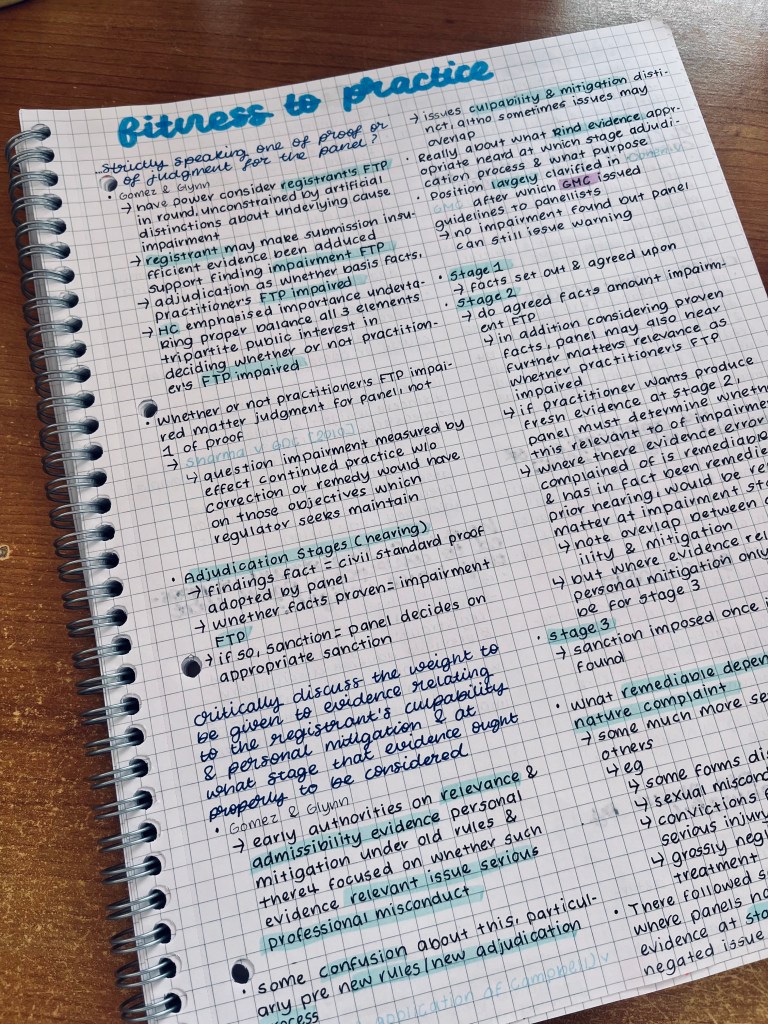 fitness to practice
...strictly speaking one of proof or
of judgment for the panel?
• Gomez & Glynn
→ have power consider registrant's FTP
in round, unconstrained by artificial
distinctions about underlying cause
impairment
→ registrant may make submission insu-
fficient evidence been adduced
support finding impairment FTP
→ adjudication as whether basis facts,
practitioner's FTP impaired
→ HC emphasised importance underta-
king proper balance all 3 elements
tripartite public interest in
deciding whether or not practition-
er's FTP impaired
• Whether or not practitioner's FTP impai-
red matter judgment for panel, not
1 of proof
→ Sharma v GDC [2010]
↳ question impairment measured by
effect continued practice w/o
correction or remedy would have
on those objectives which
regulator seeks maintain
• Adjudication Stages (hearing)
→ findings fact = civil standard proof
adopted by panel
→ whether facts proven = impairment
FTP
→ if so, sanction = panel decides on
appropriate sanction
critically discuss the weight to
be given to evidence relating
to the registrant's culpability
& personal mitigation & at
what stage that evidence ought
properly to be considered
• Gomez & Glynn
→ early authorities on relevance &
admissibility evidence personal
mitigation under old rules &
there4 focused on whether such
evidence relevant issue serious
professional misconduct
• some confusion about this, particul-
arly pre new rules/new adjudication
process
application of Campbell v
→ issues culpability & mitigation disti-
nct, altho sometimes issues may
overlap
• Really about what kind evidence appr-
opriate heard at which stage adjudi-
cation process & what purpose
• Position largely clarified in
GMC after which GMC issued
guidelines to panellists
→ no impairment found but panel
can still issue warning
• Stage 1
→ facts set out & agreed upon
• Stage 2
→ do agreed facts amount impairm-
ent FTP
↳ in addition considering proven
facts, panel may also hear
further matters relevance as
whether practitioner's FTP
impaired
→ if practitioner wants produce
fresh evidence at stage 2,
panel must determine wheth
this relevant to of impairme
→ where there evidence error
complained of is remediab
& has in fact been remedie
prior hearing, would be re
matter at impairment st
→ note overlap between c
ility & mitigation
↳ but where evidence rel
personal mitigation only
be for stage 3
• Stage 3
→ sanction imposed once i
found
• what remediable depen
nature complaint
→ some much more se
others
→ eg
↳ some forms dis
↳ sexual miscond
↳ convictions f
serious injury
↳ grossly negl
treatment
• There followed s
where panels no
evidence at sta
negated issue